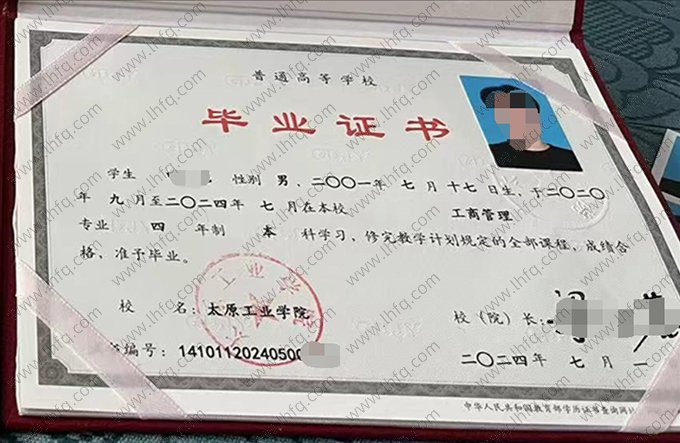 普通高等学校
毕业证书
学生 性别 男，二〇〇一年 七 月 十七 日生，于二〇二〇
年 九 月至二〇二四年 七 月在本校 工商管理
专业 四 年制 本 科学习，修完教学计划规定的全部课程，成绩合
格，准予毕业。
校 名：太原工业学院
校（院）长：
书编号：14101120240500
二〇二四年 七 月 一
中华人民共和国教育部学历证书查询网址
www.lhfq.com